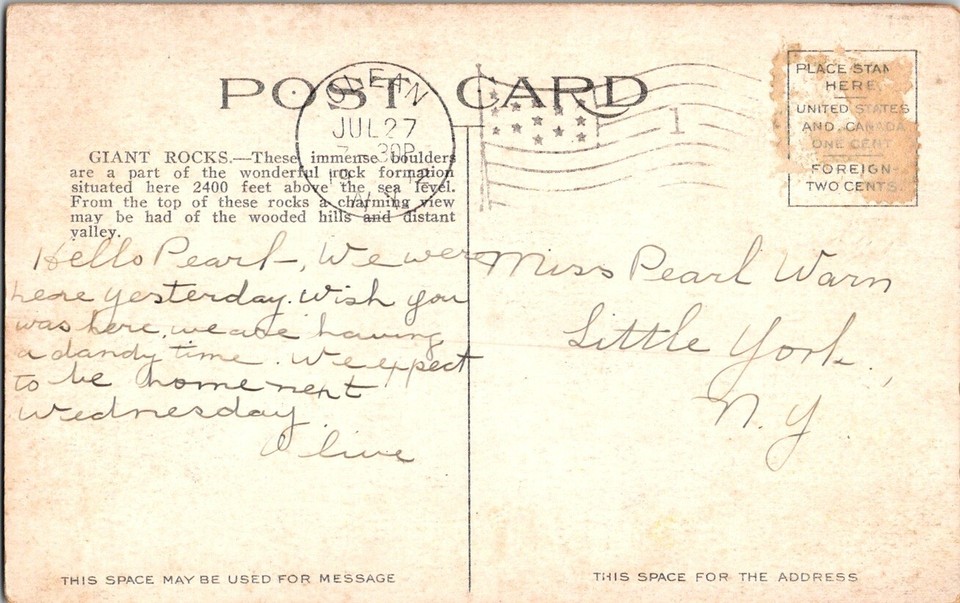 POST CARD
OLEAN
JUL 27
30P
1
PLACE STAM
HERE
UNITED STATES
AND CANADA
ONE CENT
FOREIGN
TWO CENTS.
GIANT ROCKS.—These immense boulders
are a part of the wonderful rock formation
situated here 2400 feet above the sea level.
From the top of these rocks a charming view
may be had of the wooded hills and distant
valley.
Hello Pearl, We were
here yesterday. Wish you
was here, we are having
a dandy time. We expect
to be home next
Wednesday
Olive
Miss Pearl Warn
Little York,
N. Y.
THIS SPACE MAY BE USED FOR MESSAGE
THIS SPACE FOR THE ADDRESS